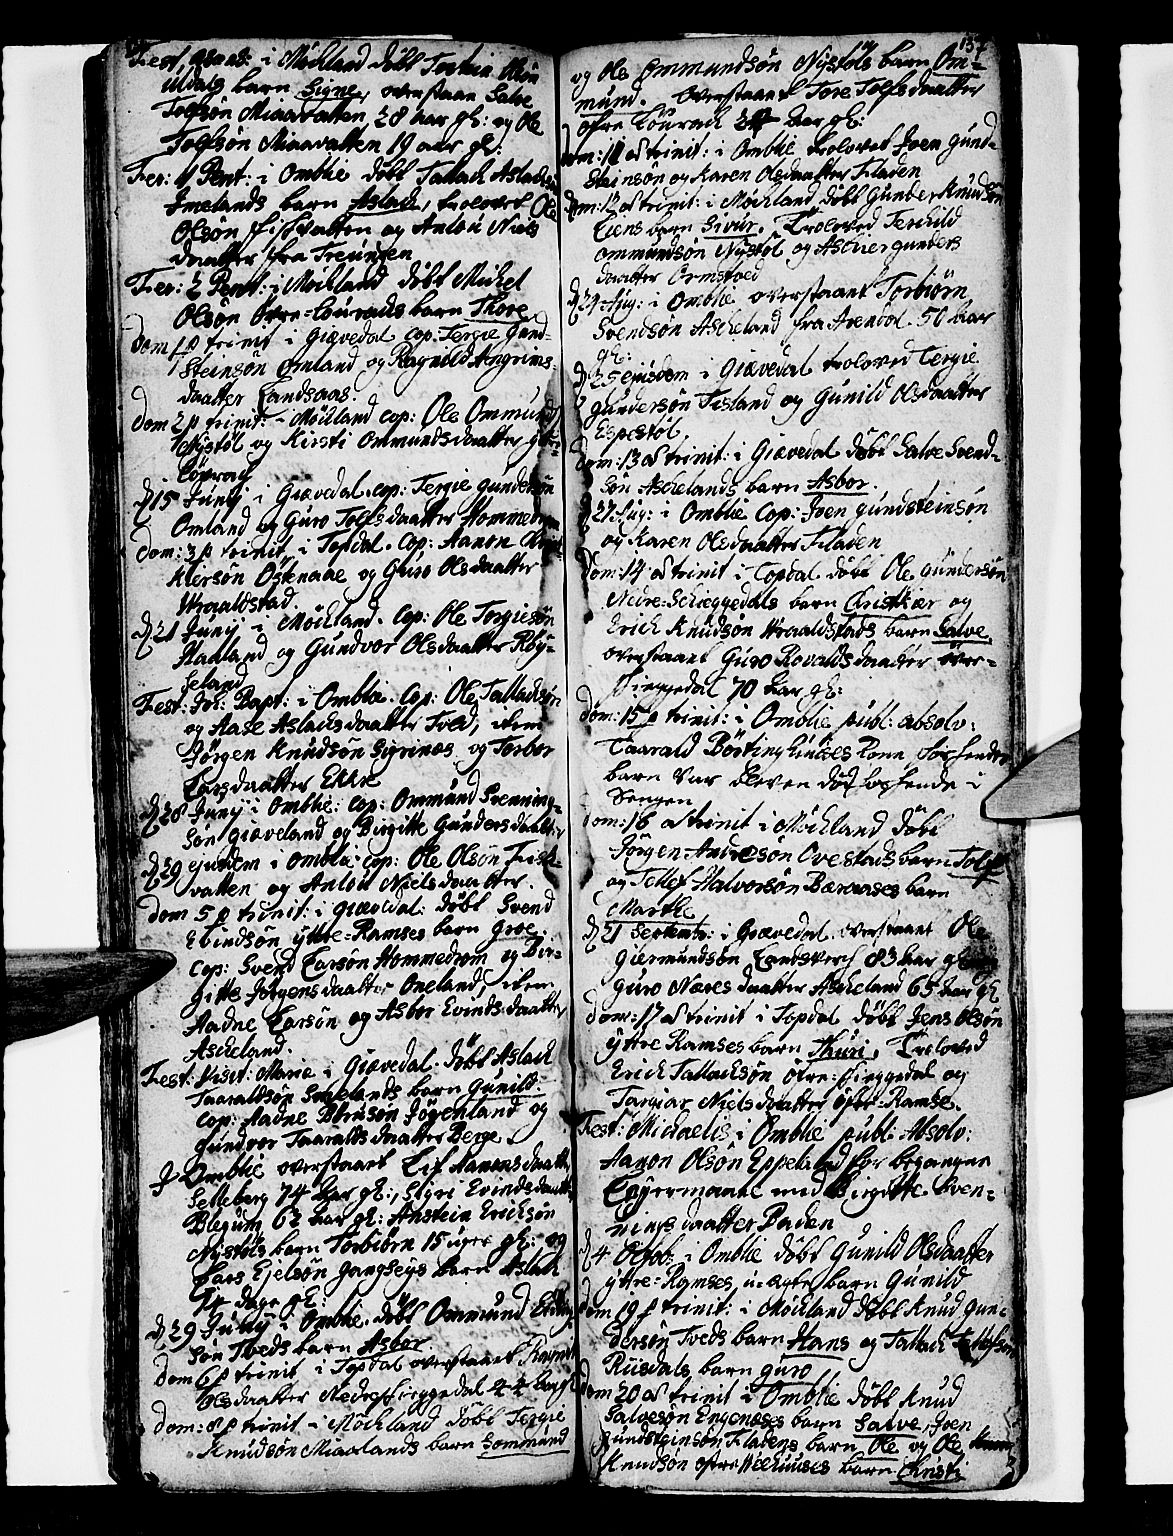 Fest. Ascens: i Mÿckland døbt Torkia Olsøn
Uldals barn Signe, overstaaen Salve
Tolfsøn Miaavatten 28 aar gl: og Ole
Tolfsøn Miaavatten 19 aar gl:
Fer: 1 Pent: i Omblie døbt Tallack Aslacksøn
Imelands barn Aslach, troloved Ole
Olsøn Fiskvatten og Anlou Niels
daatter fra Treungen
Fer: 2 Pent: i Mÿckland døbt Michel
Olsøn Øvre-Louraks barn Thore
dom 1 p trinit i Giævedal cop. Tergie Gund-
steinsøn Omland og Ragnild Arngrims-
daatter Landsaas.
dom 2 p trinit: i Mÿckland cop: Ole Ommunds
Nystøl og Kirsti Ommundsdaatter
Løvrag
D 15 Junÿ i Giævedal. cop: Tergie Gundersøn
Omland og Guro Tolfsdaatter Hommedrom
dom: 3 p trinit, i Topdal. cop: Aanon
Kiersøn Østenaae og Guro Olsdaatter
Wraaldstad
D 21 Junÿ i Mÿckland. Cop: Ole Torgiesøn
Hauland og Gundvor Olsdaatter Røÿ-
seland
Fest: Joh: Bapt: i Omblie. Cop: Ole Tallacksøn
og Aase Aslachsdaatter Tved, item
Jørgen Knudsøn Sigrinæs og Torbor
Larsdaatter Ekre
D 28 Junÿ i Omblie: cop: Ommund Svenning-
søn Giæveland og Birgitte Gundersdaatter
D 29 ejusdem i Omblie. cop: Ole Olsøn Fisk-
vatten og Anlou Nielsdaatter.
dom 5 p trinit: i Giævedal: døbt Svend
Evindsøn yttre-Ramses barn Groe.
cop: Svend Larsøn Hommedrom og Bir-
gitte Jørgensdaatter Oneland, item
Aadne Larsøn og Asbor Evindsdaatter
Ascheland.
Fest: Visit: Mariæ i Giævedal. døbt Aslach
Taaraldsøn Smelands barn Gunild.
cop: Aadne Børusøn Jøgenland og
Gundvor Taaraldsdaatter Berge.
J Omblie overstaaet Lif Aanonsdaatter
Selleberg 74 aar gl:, Sigri Evindsdaatter
Blegum 62 aar gl: Anstein Ericksøn
Nystøls barn Torbiørn 15 uger gl: og
Lars Ejelsøn Gangseÿs barn Aslak
14 dage gl:
D 29 Julÿ i Omblie. døbt Ommund
søn Tveds barn Asbor.
dom 6 p trinit i Topdal overstaaet
Olsdaatter Nedreschieggedal 44 aar gl
dom: 8 p trinit i Mÿckland døbt Tergie
Knudsøn Miaalands barn Sommund
137
og Ole Ommundsøn Nystøls barn Om-
mund. overstaaet Tore Tolfsdaatter
øfre Lourach aar gl:
dom: 11 p trinit: i Omblie troloved Joen Gund-
steinsøn og Karen Olsdaatter Fladen
dom: 12 p trinit: i Mÿckland døbt Gunder Knudsøn
Liens barn Sivur. Troloved Terkild
Ommundsøn Nystøl og Ascher gunders
daatter Ormstoed
D 24 Aug: i Omblie overstaaet Torbiørn
Svendsøn Ascheland fra Arendal 50 aar
gl:
D 25 ejusdem i Giævedal troloved Tergie
Gundersøn Fisland og Gunild Olsdaatter
Espestøl
dom: 13 p trinit: i Giævedal døbt Salve Svend-
søn Aschelands barn Asbor.
D 27 Aug: i Omblie Cop: Joen Gundsteinsøn
og Karen Olsdaatter Fladen
dom: 14 p trinit i Topdal døbt Ole Gundersøn
Nedre-Schieggedals barn Christkier og
Erich Knudsøn Wraaldstads barn Salve.
overstaaet Guro Rovaldsdaatter øvre-
Sieggedal 70 aar gl:
dom: 15 p trinit: i Omblie publ: absolv:
Taarald Børtinghuuses Kone, for hendes
barn var bleven død hos hende i
Sengen
dom: 16 p trinit i Mÿckland døbt
Jørgen Andersøn Ovestads barn Tolf
og Tellef Halvorsøn Bærøases barn
Marthe
D 21 Septemb: i Giævedal. overstaaet Ole
Giermundsøn Landsverch 83 aar gl
Guro Næresdaatter Ascheland 65 aar gl
dom: 17 p trinit i Topdal døbt Jens Olsøn
yttre Ramses barn Thuri. Troloved
Erich Tallacksøn Øvre: Sieggedal og
Targiær Nielsdaatter Øfre-Ramse.
Fest: Michaelis i Omblie publ: Absolv:
Aanon Olsøn Eppeland for begangne
Løyermaal med Birgitte Sven-
ningsdaatter Baden
D 4 Octob: i Omblie døbt Gunild Olsdaatter
yttre-Ramses u-ægte barn Gunild
dom 19 p trinit: i Mÿckland døbt Knud Gun-
dersøn Tveds barn Hans og Tallack Tellefsøn
Riisdals barn Guro
dom 20 p trinit i Omblie døbt Knud
Salvesøn Engenæses barn Salve, Joen
Gundsteinsøn Fladens barn Ole og Ole
Knudsøn øfre barn Christi